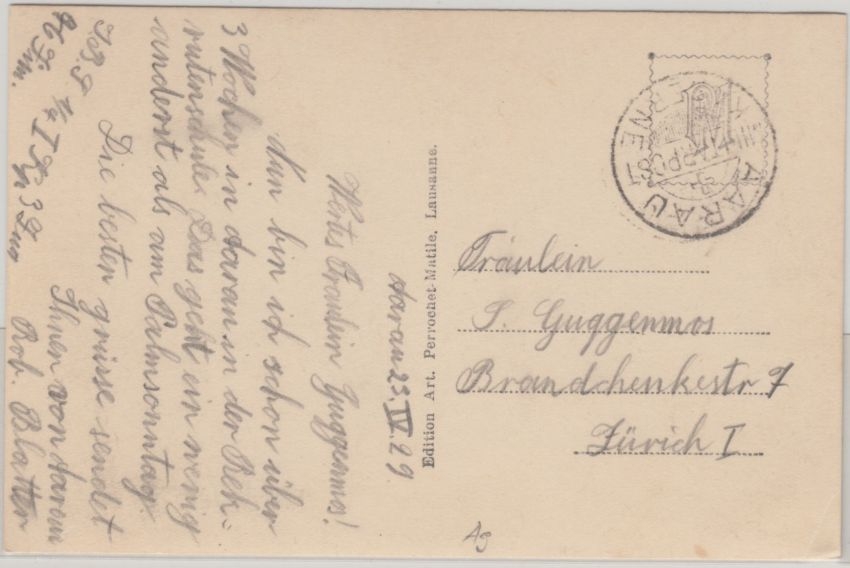 Aarau 25.IV.29.
Wertes Fräulein Guggenmos!
Nun bin ich schon über
3 Wochen in Aarau in der Rek-
rutenschule. Das geht ein wenig
anderst als am Palmsonntag.
Die besten grüsse sendet
Ihnen von Aarau
Rob. Blatter
I. Kp. 3 Zug
Edition Art. Perrochet-Matile, Lausanne.
AARAU
Fräulein
S. Guggenmos
Brandchenkestr 7
Zürich I
Ag